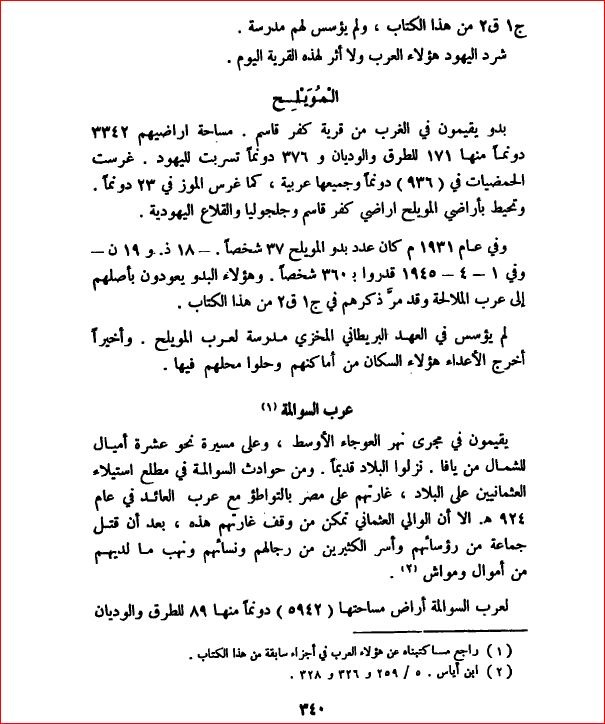 ج١ ق٢ من هذا الكتاب ، ولم يؤسس لهم مدرسة .
شرد اليهود هؤلاء العرب ولا أثر لهذه القرية اليوم .
المُوَيْلِح
بدو يقيمون في الغرب من قرية كفر قاسم . مساحة اراضيهم ٣٣٤٢
دونماً منها ١٧١ للطرق والوديان و ٣٧٦ دونماً تسربت لليهود . غرست
الحمضيات في ( ٩٣٦ ) دونماً وجميعها عربية ، كما غرس الموز في ٢٣ دونماً .
وتحيط بأراضي المويلح اراضي كفر قاسم وجلجوليا والقلاع اليهودية .
وفي عام ١٩٣١ م كان عدد بدو المويلح ٣٧ شخصاً . – ١٨ ذ. و ١٩ ن –
وفي ١ – ٤ – ١٩٤٥ قدروا بـ ٣٦٠ شخصاً . وهؤلاء البدو يعودون بأصلهم
إلى عرب الملالحة وقد مرَّ ذكرهم في ج١ ق٢ من هذا الكتاب .
لم يؤسس في العهد البريطاني المخزي مدرسة لعرب المويلح . وأخيراً
أخرج الأعداء هؤلاء السكان من أماكنهم وحلوا محلهم فيها .
عرب السوالمة (١)
يقيمون في مجرى نهر العوجاء الأوسط ، وعلى مسيرة نحو عشرة أميال
للشمال من يافا . نزلوا البلاد قديماً . ومن حوادث السوالمة في مطلع استيلاء
العثمانيين على البلاد ، غارتهم على مصر بالتواطؤ مع عرب العائد في عام
٩٢٤ هـ. الا أن الوالي العثماني تمكن من وقف غارتهم هذه ، بعد أن قتل
جماعة من رؤسائهم وأسر الكثيرين من رجالهم ونسائهم ونهب ما لديهم
من أموال ومواش (٢) .
لعرب السوالمة أراض مساحتها ( ٥٩٤٢ ) دونماً منها ٨٩ للطرق والوديان
( ١ ) راجع ما كتبناه عن هؤلاء العرب في أجزاء سابقة من هذا الكتاب .
( ٢ ) ابن أياس . ٥ / ٢٥٩ و ٣٢٦ و ٣٢٨ .
٣٤٠